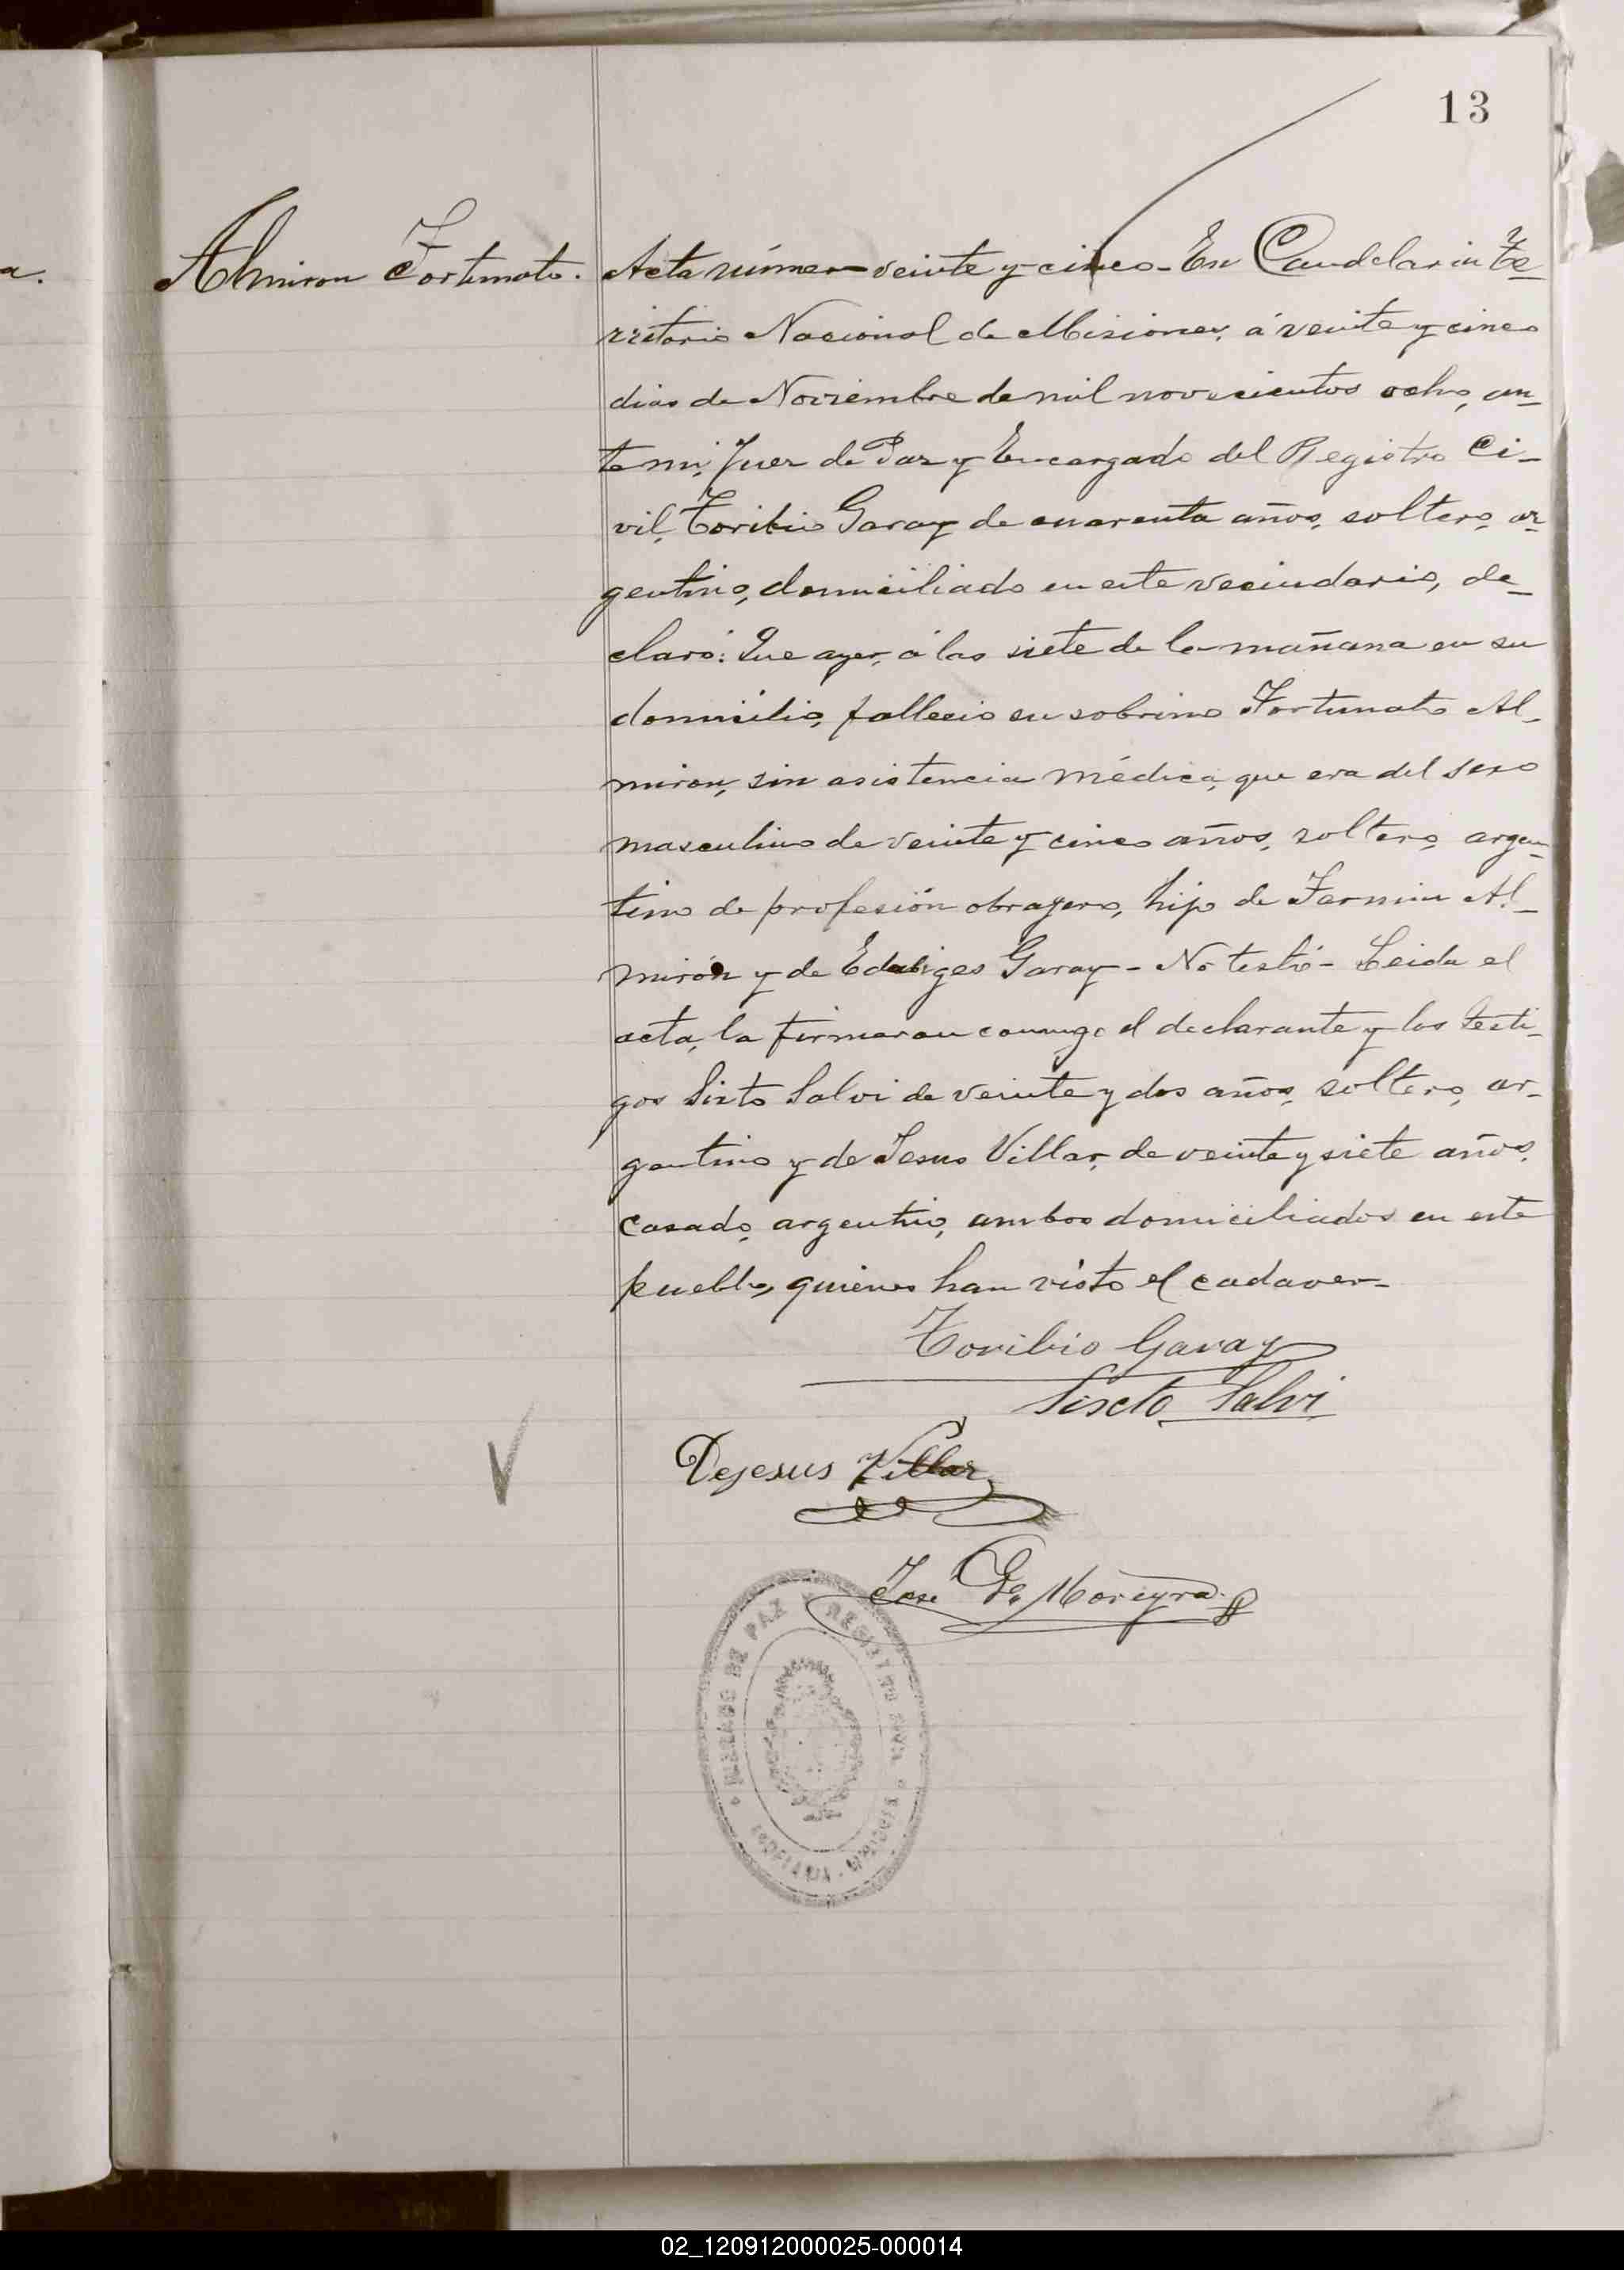 13
a.
Almiron Fortunato.
Acta número veinte y cinco - En Candelaria Te-
rritorio Nacional de Misiones, á veinte y cinco
dias de Noviembre de mil novecientos ocho, an-
te mi, Juez de Paz y Encargado del Registro Ci-
vil, Toribio Garay de cuarenta años, soltero, ar-
gentino, domiciliado en este vecindario, de-
claró: Que ayer, á las siete de la mañana en su
domicilio, fallecio su sobrino Fortunato Al-
miron, sin asistencia médica, que era del sexo
masculino de veinte y cinco años, soltero, argen-
tino de profesión obragero, hijo de Fermin Al-
mirón y de Eduviges Garay - No testó - Leida el
acta, la firmaron conmigo el declarante y los testi-
gos Sixto Salvi de veinte y dos años, soltero, ar-
gentino y de Jesus Villar, de veinte y siete años,
casado, argentino, ambos domiciliados en este
pueblo, quienes han visto el cadaver-
Toribio Garay
Siscto Salvi
Dejesus Villar
José G. Moreyra
JUZGADO DE PAZ Y REGISTRO CIVIL
MISIONES
02_120912000025-000014